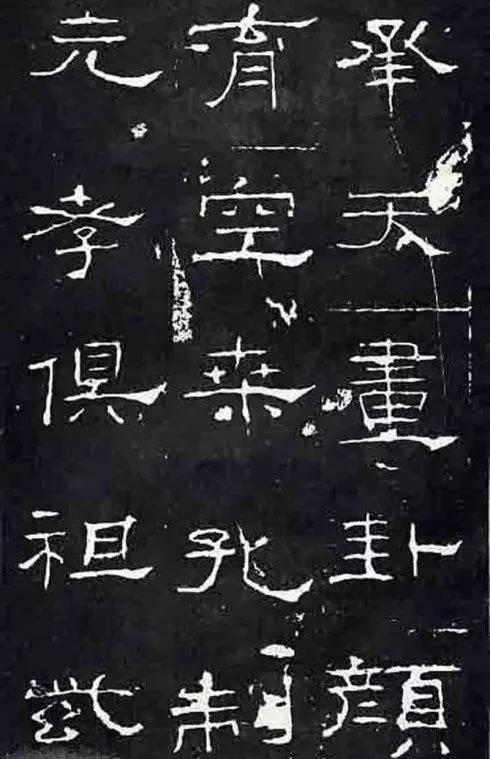 承天畫卦顏
育空桒孔制
元孝俱祖紫